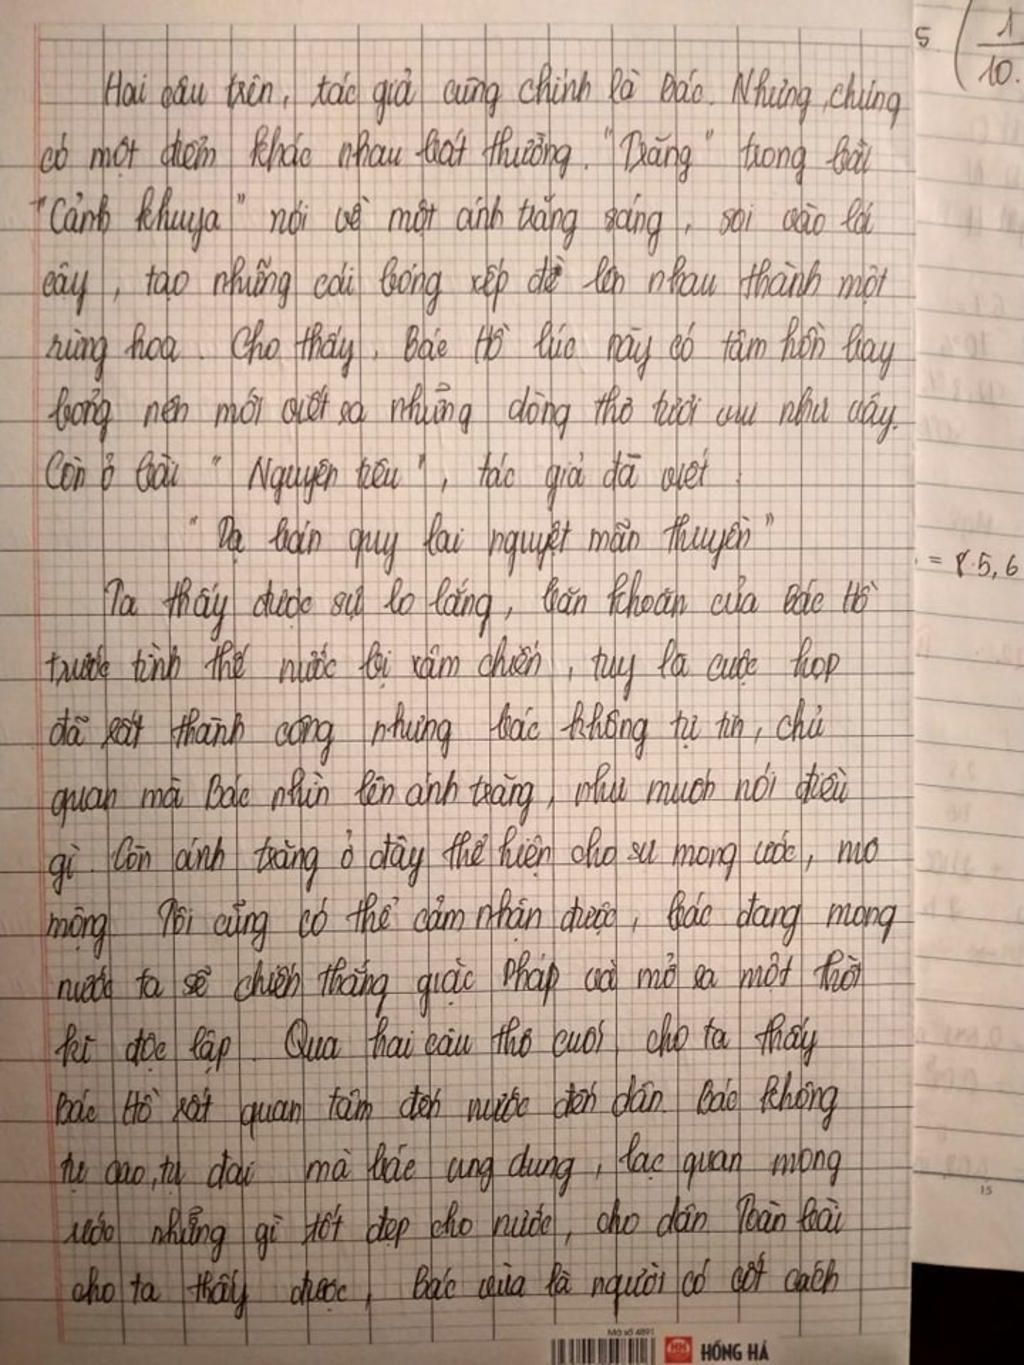 Hai câu trên, tác giả cũng chính là Bác. Nhưng, chúng
có một điểm khác nhau bất thường. "Trăng" trong bài
"Cảnh khuya" nói về một ánh trăng sáng, soi vào lá
cây, tạo những cái bóng xếp đè lên nhau thành một
rừng hoa. Cho thấy, Bác Hồ lúc này có tâm hồn bay
bổng nên mới viết ra những dòng thơ tươi vui như vậy.
Còn ở bài "Nguyên tiêu", tác giả đã viết
"Dạ bán quy lai nguyệt mãn thuyền"
Ta thấy được sự lo lắng, băn khoăn của Bác Hồ
trước tình thế nước lội xâm chiến, tuy là cuộc họp
đã rất thành công nhưng bác không tự tin, chủ
quan mà Bác nhìn lên ánh trăng, như muốn nói điều
gì. Còn ánh trăng ở đây thể hiện cho sự mong ước, mơ
mộng. Tôi cũng có thể cảm nhận được, bác đang mong
nước ta sẽ chiến thắng giặc Pháp và mở ra một thời
kì độc lập. Qua hai câu thơ cuối, cho ta thấy
Bác Hồ rất quan tâm đến nước đến dân. Bác không
tự cao, tự đại mà bác ung dung, lạc quan mong
ước những gì tốt đẹp cho nước, cho dân. Toàn bài
cho ta thấy được, Bác vừa là người có cốt cách
Mã số 4891
HỒNG HÀ
5 ( 1
10.
= 8.5,6
15